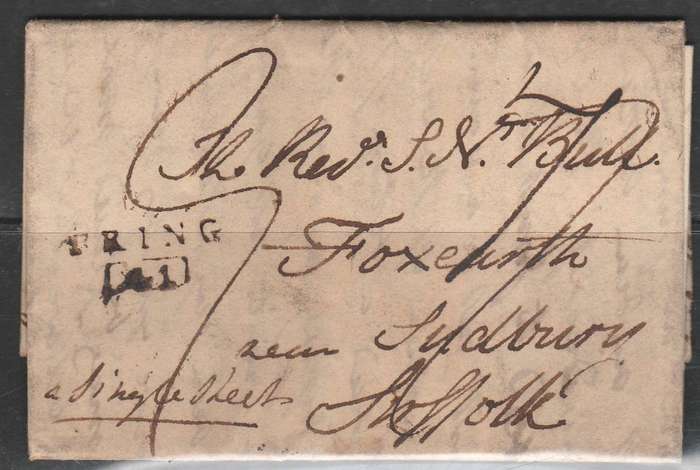 The Revd. S. N. Bull.
TRING
Foxearth
near Sudbury
a Single Sheet
Suffolk